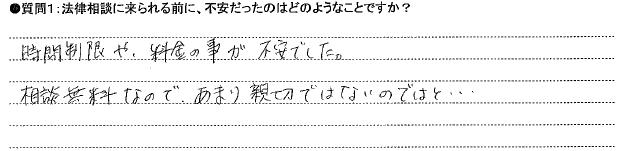 ●質問1:法律相談に来られる前に、不安だったのはどのようなことですか?
時間制限や、料金の事が不安でした。
相談無料なので、あまり親切ではないのではと・・・